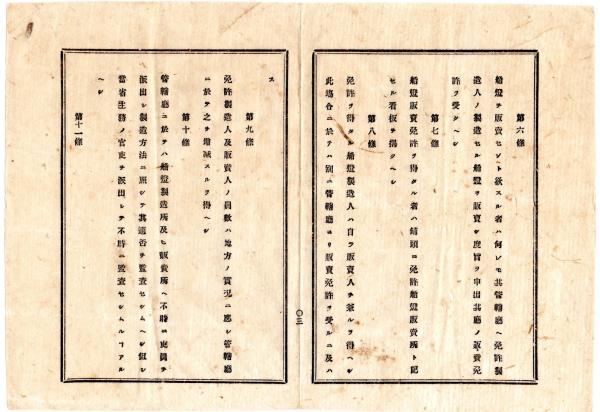 第六條
船燈ヲ販賣セント欲スル者ハ何レモ其管轄廳ヘ免許製
造人ノ製造セル船燈ヲ販賣シ度旨ヲ申出其廳ノ販賣免
許ヲ受クヘシ
第七條
船燈販賣免許ヲ得タル者ハ舖頭ニ免許船燈販賣所ト記
セル看板ヲ揭クヘシ
第八條
免許ヲ得タル船燈製造人ハ自ラ販賣人ヲ兼ルヲ得ヘシ
此塲合ニ於テハ別ニ管轄廳ヨリ販賣免許ヲ受ルニ及ハ
〇三
ス
第九條
免許製造人及販賣人ノ員數ハ地方ノ實況ニ應シ管轄廳
ニ於テ之ヲ增減スルヲ得ヘシ
第十條
管轄廳ニ於テハ船燈製造所及ヒ販賣所ヘ不時ニ吏員ヲ
派出シ製造方法ニ照シテ其適否ヲ監査セシムヘシ但シ
當省主務ノ官吏ヲ派出シテ不時ニ監査セシムルヿアル
ヘシ
第十一條